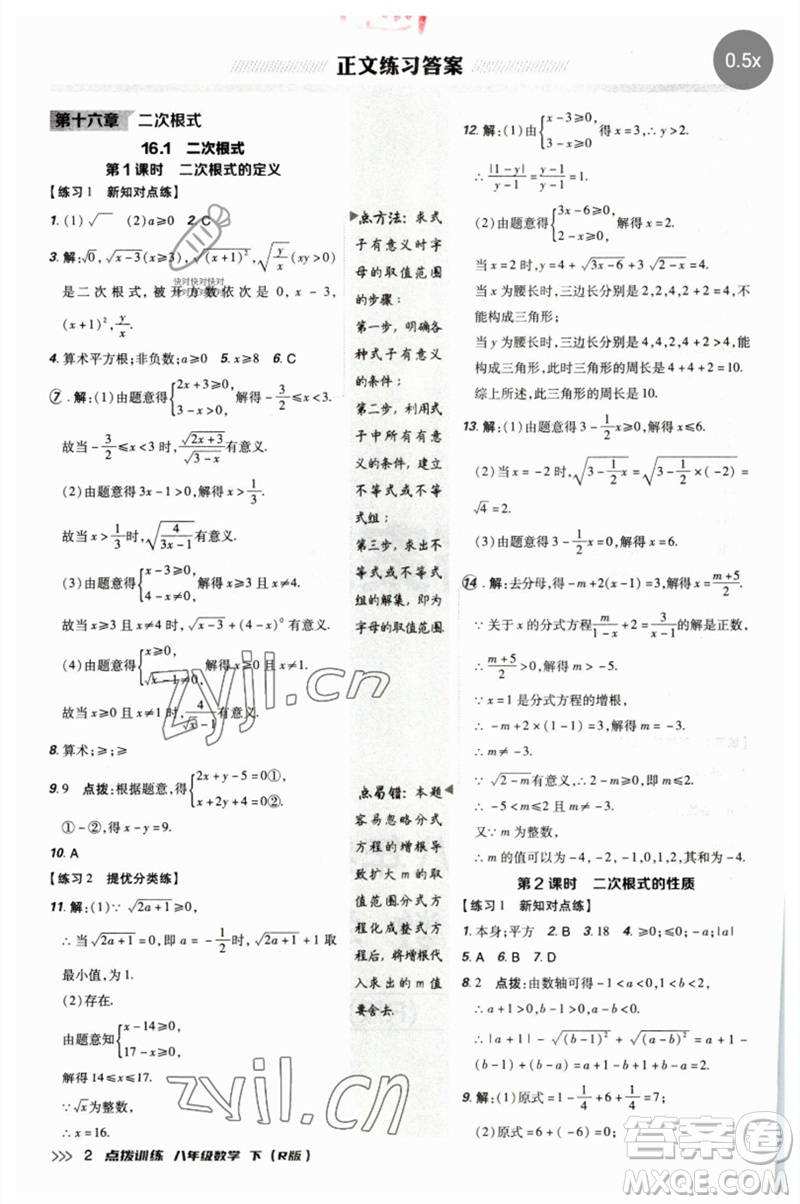 正文练习答案
0.5x
第十六章 二次根式
16.1 二次根式
第1课时 二次根式的定义
【练习1 新知对点练】
1. (1) √‾ (2)a≥0 2. C
3. 解:√0, √(x-3)(x≥3), √((x+1)²), √(y/x)(xy>0)
是二次根式,被开方数依次是0,x-3,
(x+1)²,y/x.
4. 算术平方根;非负数;a≥0 5. x≥8 6. C
⑦. 解:(1)由题意得{2x+3≥0, 3-x>0, 解得-3/2≤x<3.
故当-3/2≤x<3时,√(2x+3)/√(3-x)有意义.
(2)由题意得3x-1>0,解得x>1/3.
故当x>1/3时,√(4/(3x-1))有意义.
(3)由题意得{x-3≥0, 4-x≠0, 解得x≥3且x≠4.
故当x≥3且x≠4时,√(x-3)+(4-x)⁰有意义.
(4)由题意得{x≥0, √x-1≠0, 解得x≥0且x≠1.
故当x≥0且x≠1时,4/(√x-1)有意义.
8. 算术;≥;≥
9. 9 点拨:根据题意,得{2x+y-5=0①, x+2y+4=0②,
①-②,得x-y=9.
10. A
【练习2 提优分类练】
11. 解:(1)∵√(2a+1)≥0,
∴当√(2a+1)=0,即a=-1/2时,√(2a+1)取
最小值,为0.
(2)存在.
由题意知{x-14≥0, 17-x>0,
解得14≤x<17.
∵√x为整数,
∴x=16.
点方法:求式
子有意义时字
母的取值范围
的步骤:
第一步,明确各
种式子有意义
的条件;
第二步,利用式
子中所有有意
义的条件,建立
不等式或不等
式组;
第三步,求出不
等式或不等式
组的解集,即为
字母的取值范围.
点易错:本题
容易忽略分式
方程的增根导
致扩大m的取
值范围.分式方
程化成整式方
程后,将增根代
入求出的m值
要舍去.
12. 解:(1)由{x-3≥0, 3-x≥0, 得x=3,∴y<1.
∴|1-y|/(y-1)=(1-y)/(y-1)=-1.
(2)由题意得{3x-6≥0, 2-x≥0, 解得x=2.
当x=2时,y=√(3x-6)+√(2-x)+4=4.
当x为腰长时,三边长分别是2,2,4,2+2=4,不
能构成三角形;
当y为腰长时,三边长分别是4,4,2,4+2>4,能
构成三角形.此时三角形的周长是4+4+2=10.
综上所述,此三角形的周长是10.
13. 解:(1)由题意得3-1/2x≥0,解得x≤6.
(2)当x=-2时,√(3-1/2x)=√(3-1/2×(-2))=2.
(3)由题意得3-1/2x=0,解得x=6.
⑭. 解:去分母,得-m+2(x-1)=3,解得x=(m+5)/2.
∵关于x的分式方程m/(1-x)+2=3/(x-1)的解是正数,
∴(m+5)/2>0.解得m>-5.
∵x=1是分式方程的增根,
∴-m+2×(1-1)=3,∴m=-3.
∴m≠-3.
∵√(2-m)有意义,∴2-m≥0,即m≤2.
∴-5<m≤2且m≠-3.
又∵m为整数,
∴m的值可以为-4,-2,-1,0,1,2.其和为-4.
第2课时 二次根式的性质
【练习1 新知对点练】
1. 本身;平方 2. B 3. 18 4. ≥0;≤0;-a;|a|
5. A 6. B 7. D
8. 2 点拨:由数轴可得-1<a<0,1<b<2,
∴a+1>0,b-1>0,a-b<0.
∴|a+1|-√((b-1)²)+√((a-b)²)=a+1-(b-1)+(b-a)=a+1-b+1+b-a=2.
9. 解:(1)原式=1-1/4+6+1/4=7;
>>> 2 点拨训练 八年级数学 下(R版)
快对快对快对
zyjl.cn
zyjl.cn
答案圈
MXQE.COM